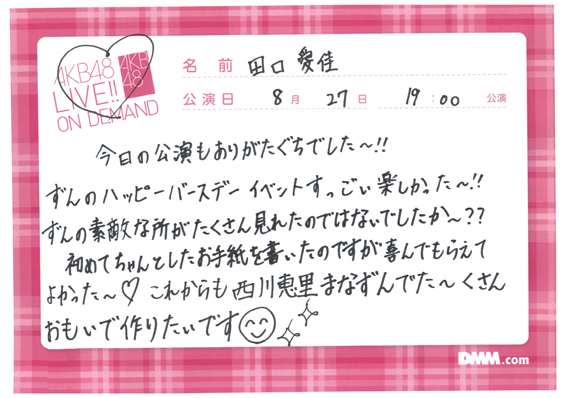 AKB48
LIVE!!
ON DEMAND
AKB
48
名前 田口愛佳
公演日 8月 27日 19:00 公演
今日の公演もありがたぐちでした〜!!
ずんのハッピーバースデーイベントすっごい楽しかった〜!!
ずんの素敵な所がたくさん見れたのではないでしたか〜??
初めてちゃんとしたお手紙を書いたのですが喜んでもらえて
よかった〜♡ これからも西川恵里まなずんでた〜くさん
おもいで作りたいです
DMM.com